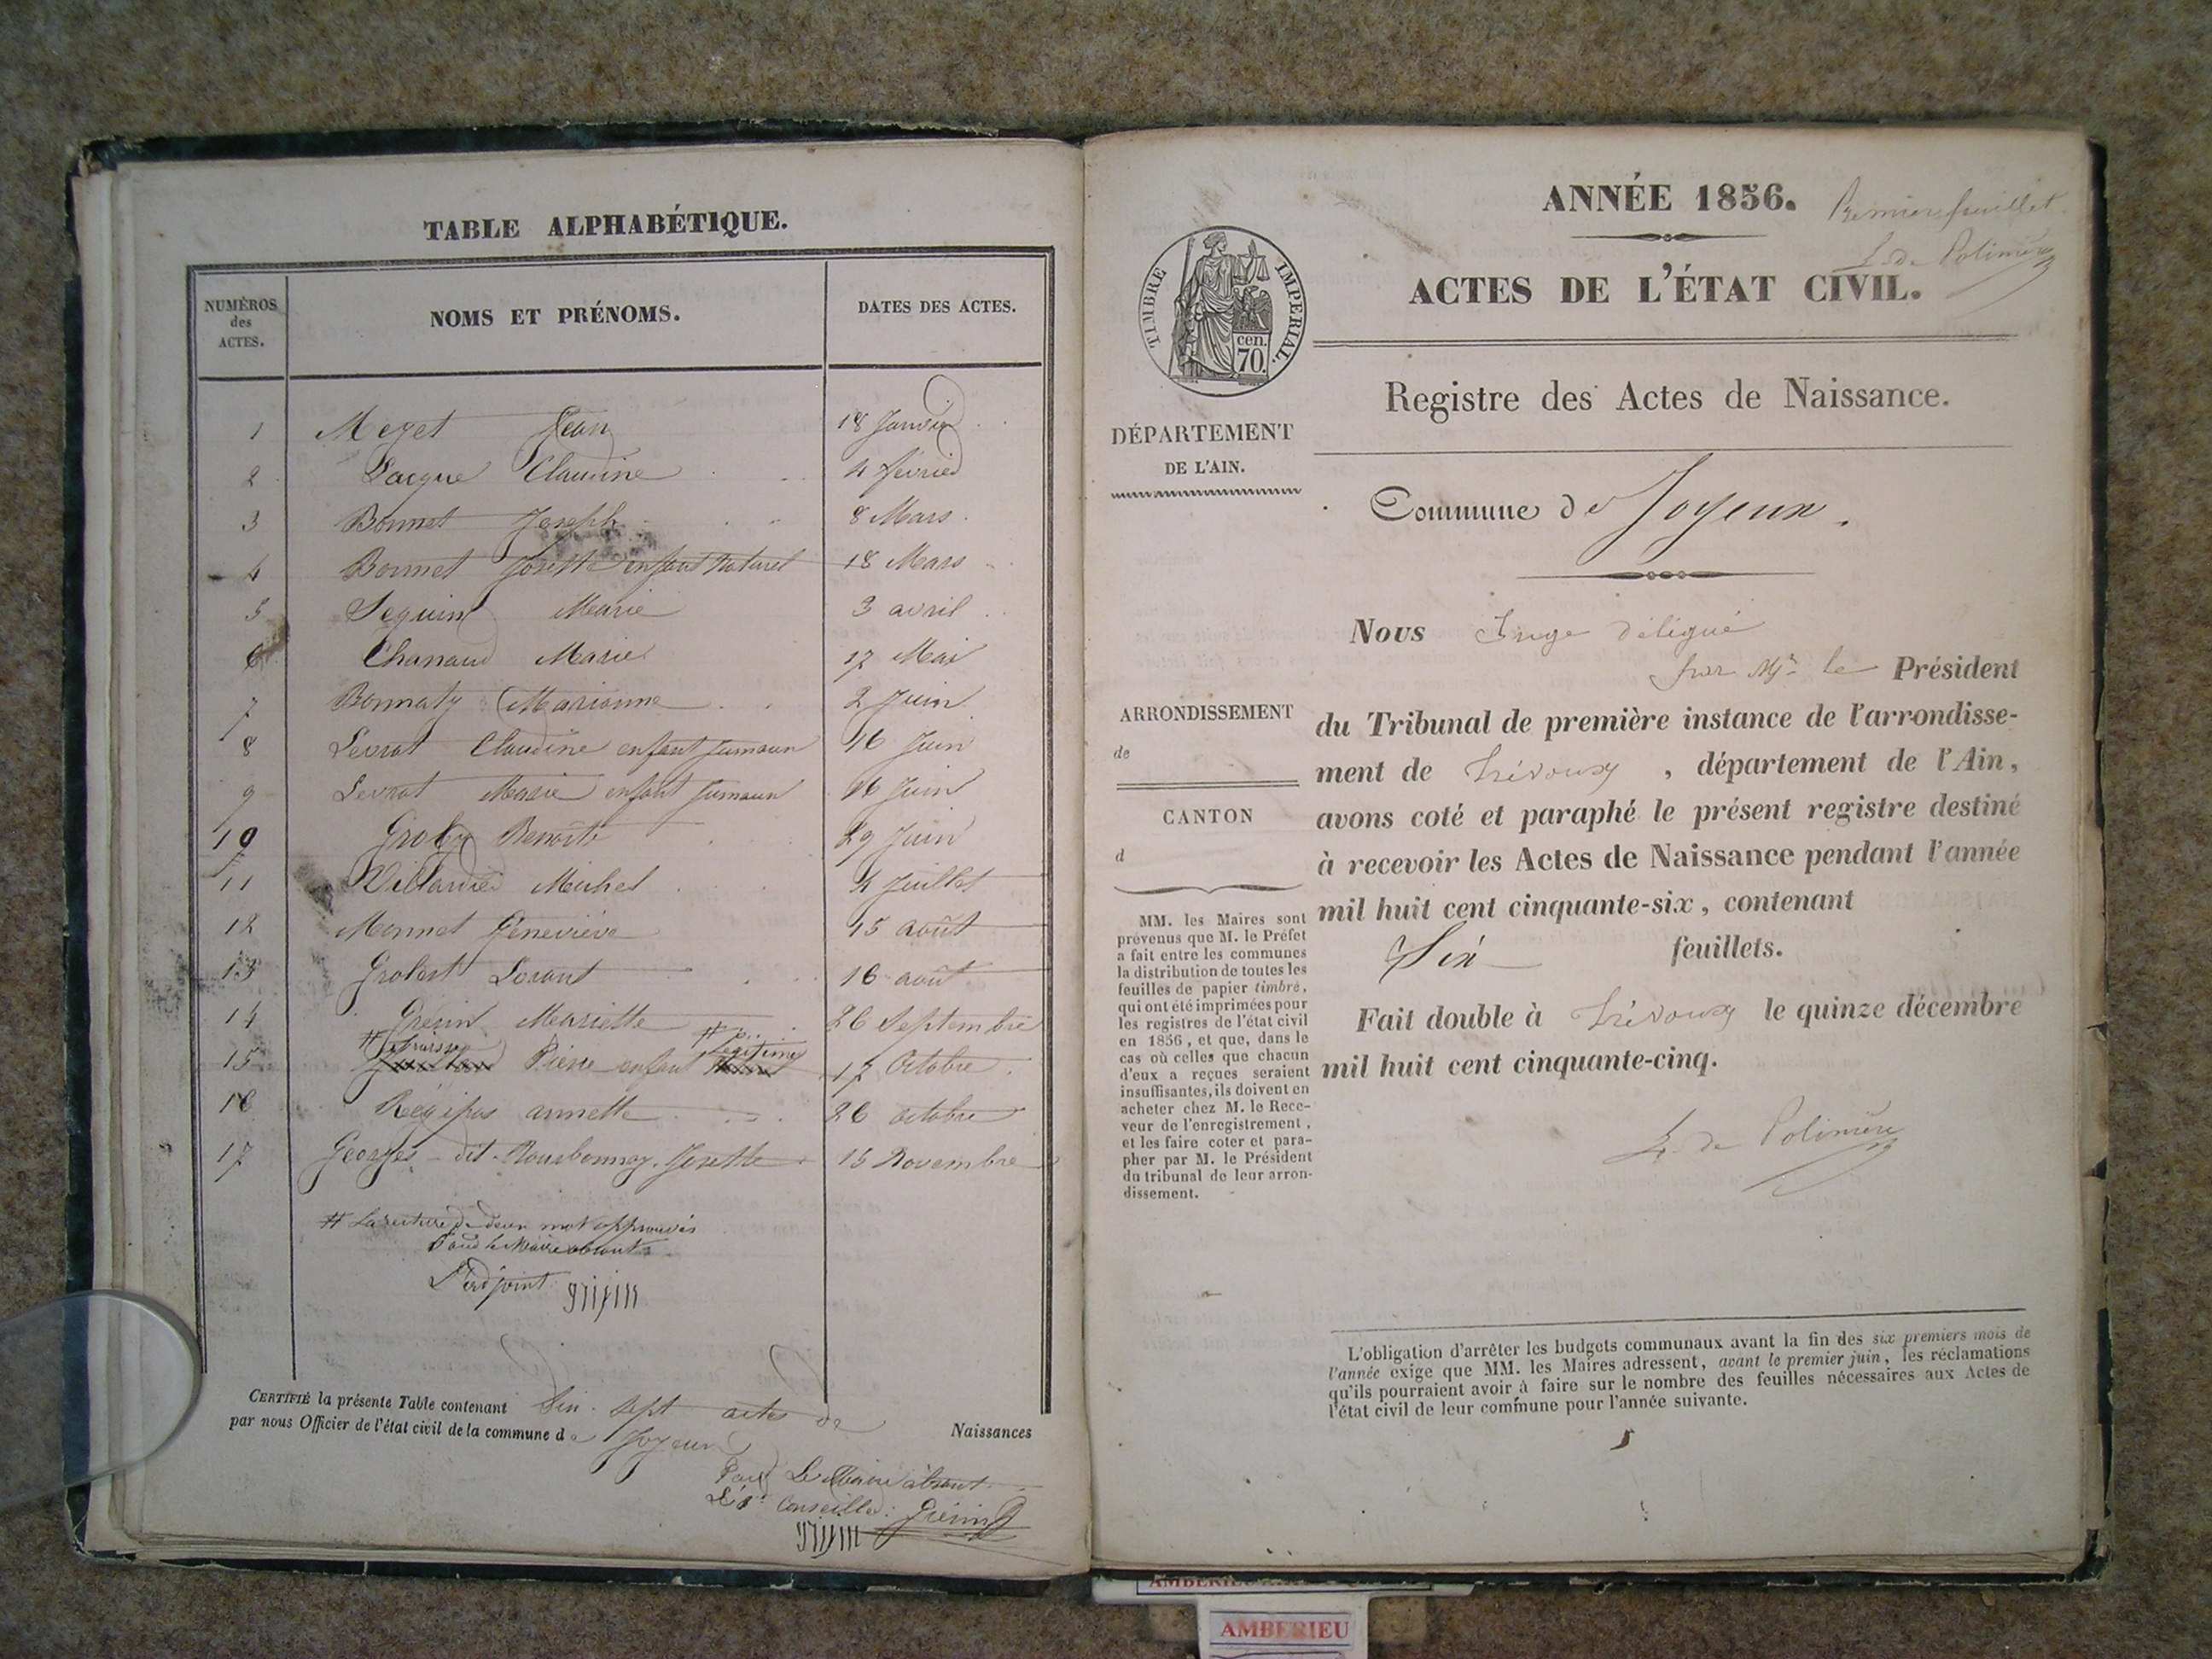 TABLE ALPHABÉTIQUE.
NUMÉROS des ACTES.
NOMS ET PRÉNOMS.
DATES DES ACTES.
1 Meget Jean 18 Janvier
2 Jacque Claudine 4 février
3 Bonnet Joseph 8 Mars
4 Bonnet Josette enfant Naturel 18 Mars
5 Seguin Marie 3 avril
6 Chanaud Marie 17 Mai
7 Bonnaty Marianne 2 Juin
8 Levrat Claudine enfant Jumaux 16 Juin
9 Levrat Marie enfant Jumaux 16 Juin
10 Benoite 29 Juin
11 Michel 4 Juillet
12 Monnet Geneviève 15 août
13 Grobert Lorant 16 août
14 Grérin Mariette 26 Septembre
légitime
15 Pierre enfant 17 Octobre
16 annette 26 octobre
17 Georges dit Bourbonnay Josette 15 Novembre
# La rature de deux mot approuvés
Pour le Maire absent
L'adjoint
CERTIFIÉ la présente Table contenant Dix-sept actes de Naissances
par nous Officier de l'état civil de la commune de Joyeux
Pour Le Maire absent
Le 1er Conseiller: Grérin
ANNÉE 1856.
Premier feuillet
L. de Polinière
ACTES DE L'ÉTAT CIVIL.
TIMBRE IMPERIAL.
cen.
70.
Registre des Actes de Naissance.
DÉPARTEMENT
DE L'AIN.
Commune de Joyeux.
Nous Juge délégué
par Mr le Président
ARRONDISSEMENT
de
CANTON
d
du Tribunal de première instance de l'arrondisse-
ment de Trévoux, département de l'Ain,
avons coté et paraphé le présent registre destiné
à recevoir les Actes de Naissance pendant l'année
mil huit cent cinquante-six, contenant
Six feuillets.
Fait double à Trévoux le quinze décembre
mil huit cent cinquante-cinq.
L. de Polinière
MM. les Maires sont
prévenus que M. le Préfet
a fait entre les communes
la distribution de toutes les
feuilles de papier timbré,
qui ont été imprimées pour
les registres de l'état civil
en 1856, et que, dans le
cas où celles que chacun
d'eux a reçues seraient
insuffisantes, ils doivent en
acheter chez M. le Rece-
veur de l'enregistrement,
et les faire coter et para-
pher par M. le Président
du tribunal de leur arron-
dissement.
L'obligation d'arrêter les budgets communaux avant la fin des six premiers mois de
l'année exige que MM. les Maires adressent, avant le premier juin, les réclamations
qu'ils pourraient avoir à faire sur le nombre des feuilles nécessaires aux Actes de
l'état civil de leur commune pour l'année suivante.
AMBERIEU